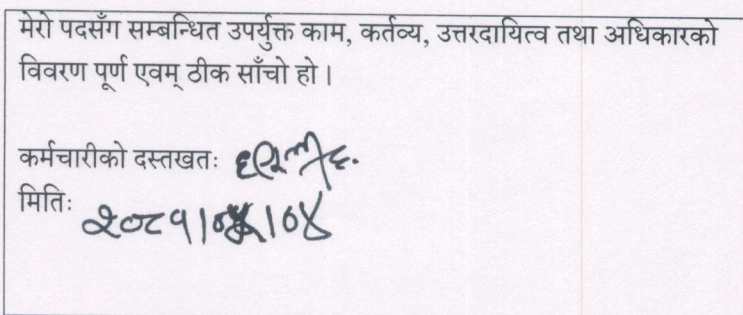 मेरो पदसँग सम्बन्धित उपर्युक्त काम, कर्तव्य, उत्तरदायित्व तथा अधिकारको
विवरण पूर्ण एवम् ठीक साँचो हो ।
कर्मचारीको दस्तखतः
मितिः २०८१।०४।०४